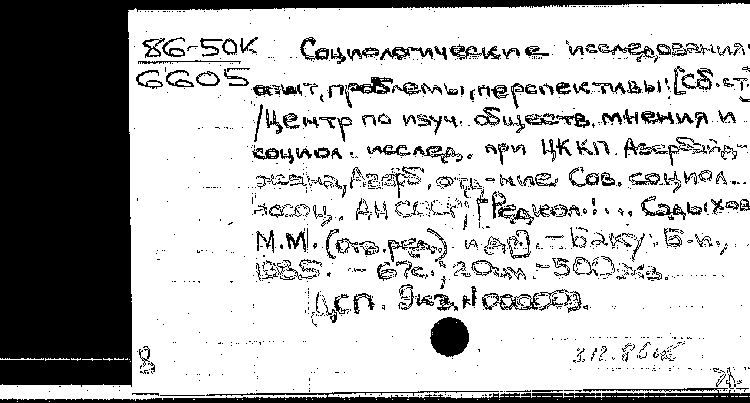 86-50К Социологические исследования:
6605 опыт, проблемы, перспективы: [Сб. ст.]
/Центр по изуч. обществ. мнения и
социол. исслед. при ЦК КП Азербайд-
жана, Азерб. отд-ние Сов. социол.
ассоц. АН СССР; [Редкол.: ... Садыхов
М.М. (отв. ред.) и др]. - Баку: Б.и.,
1985. - 67с.; 20см. - 500экз.
ДСП. Экз. N 000003.
8